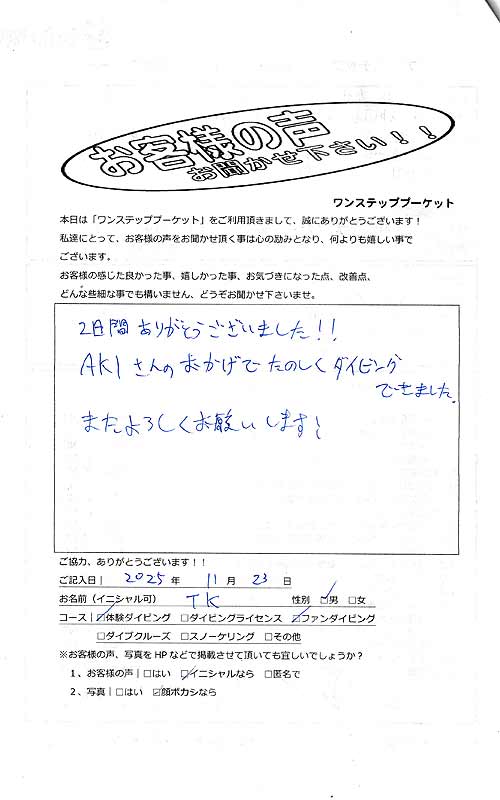 お客様の声
お聞かせ下さい！！
ワンステッププーケット
本日は「ワンステッププーケット」をご利用頂きまして、誠にありがとうございます！
私達にとって、お客様の声をお聞かせ頂く事は心の励みとなり、何よりも嬉しい事で
ございます。
お客様の感じた良かった事、嬉しかった事、お気づきになった点、改善点、
どんな些細な事でも構いません、どうぞお聞かせ下さいませ。
2日間ありがとうございました！！
AKIさんのおかげでたのしくダイビング
できました。
またよろしくお願いします！
ご協力、ありがとうございます！！
ご記入日｜ 2025 年 11 月 23 日
お名前（イニシャル可） TK 性別 ☑男 □女
コース｜☑体験ダイビング □ダイビングライセンス ☑ファンダイビング
□ダイブクルーズ □スノーケリング □その他
※お客様の声、写真を HP などで掲載させて頂いても宜しいでしょうか？
1、お客様の声｜□はい ☑イニシャルなら □匿名で
2、写真｜□はい ☑顔ボカシなら